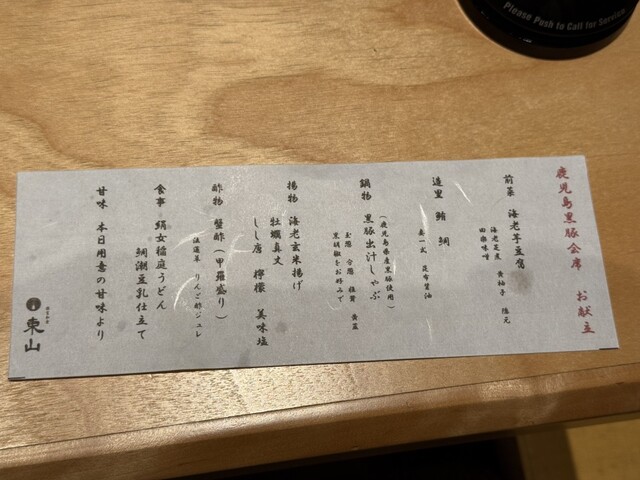 Please Push to Call for Service
鹿児島黒豚会席 お献立
前菜 海老芋豆腐
海老芝煮 黄柚子 隠元
田楽味噌
造里 鮪 鯛
妻一式 昆布醤油
鍋物 黒豚出汁しゃぶ
(鹿児島県産黒豚使用)
黒胡椒をお好みで
揚物 海老玄米揚げ
牡蠣真丈
しし唐 檸檬 美味塩
酢物 蟹酢(甲羅盛り)
法蓮草 りんご酢ジュレ
食事 絹女稲庭うどん
鯛潮豆乳仕立て
甘味 本日用意の甘味より
東山